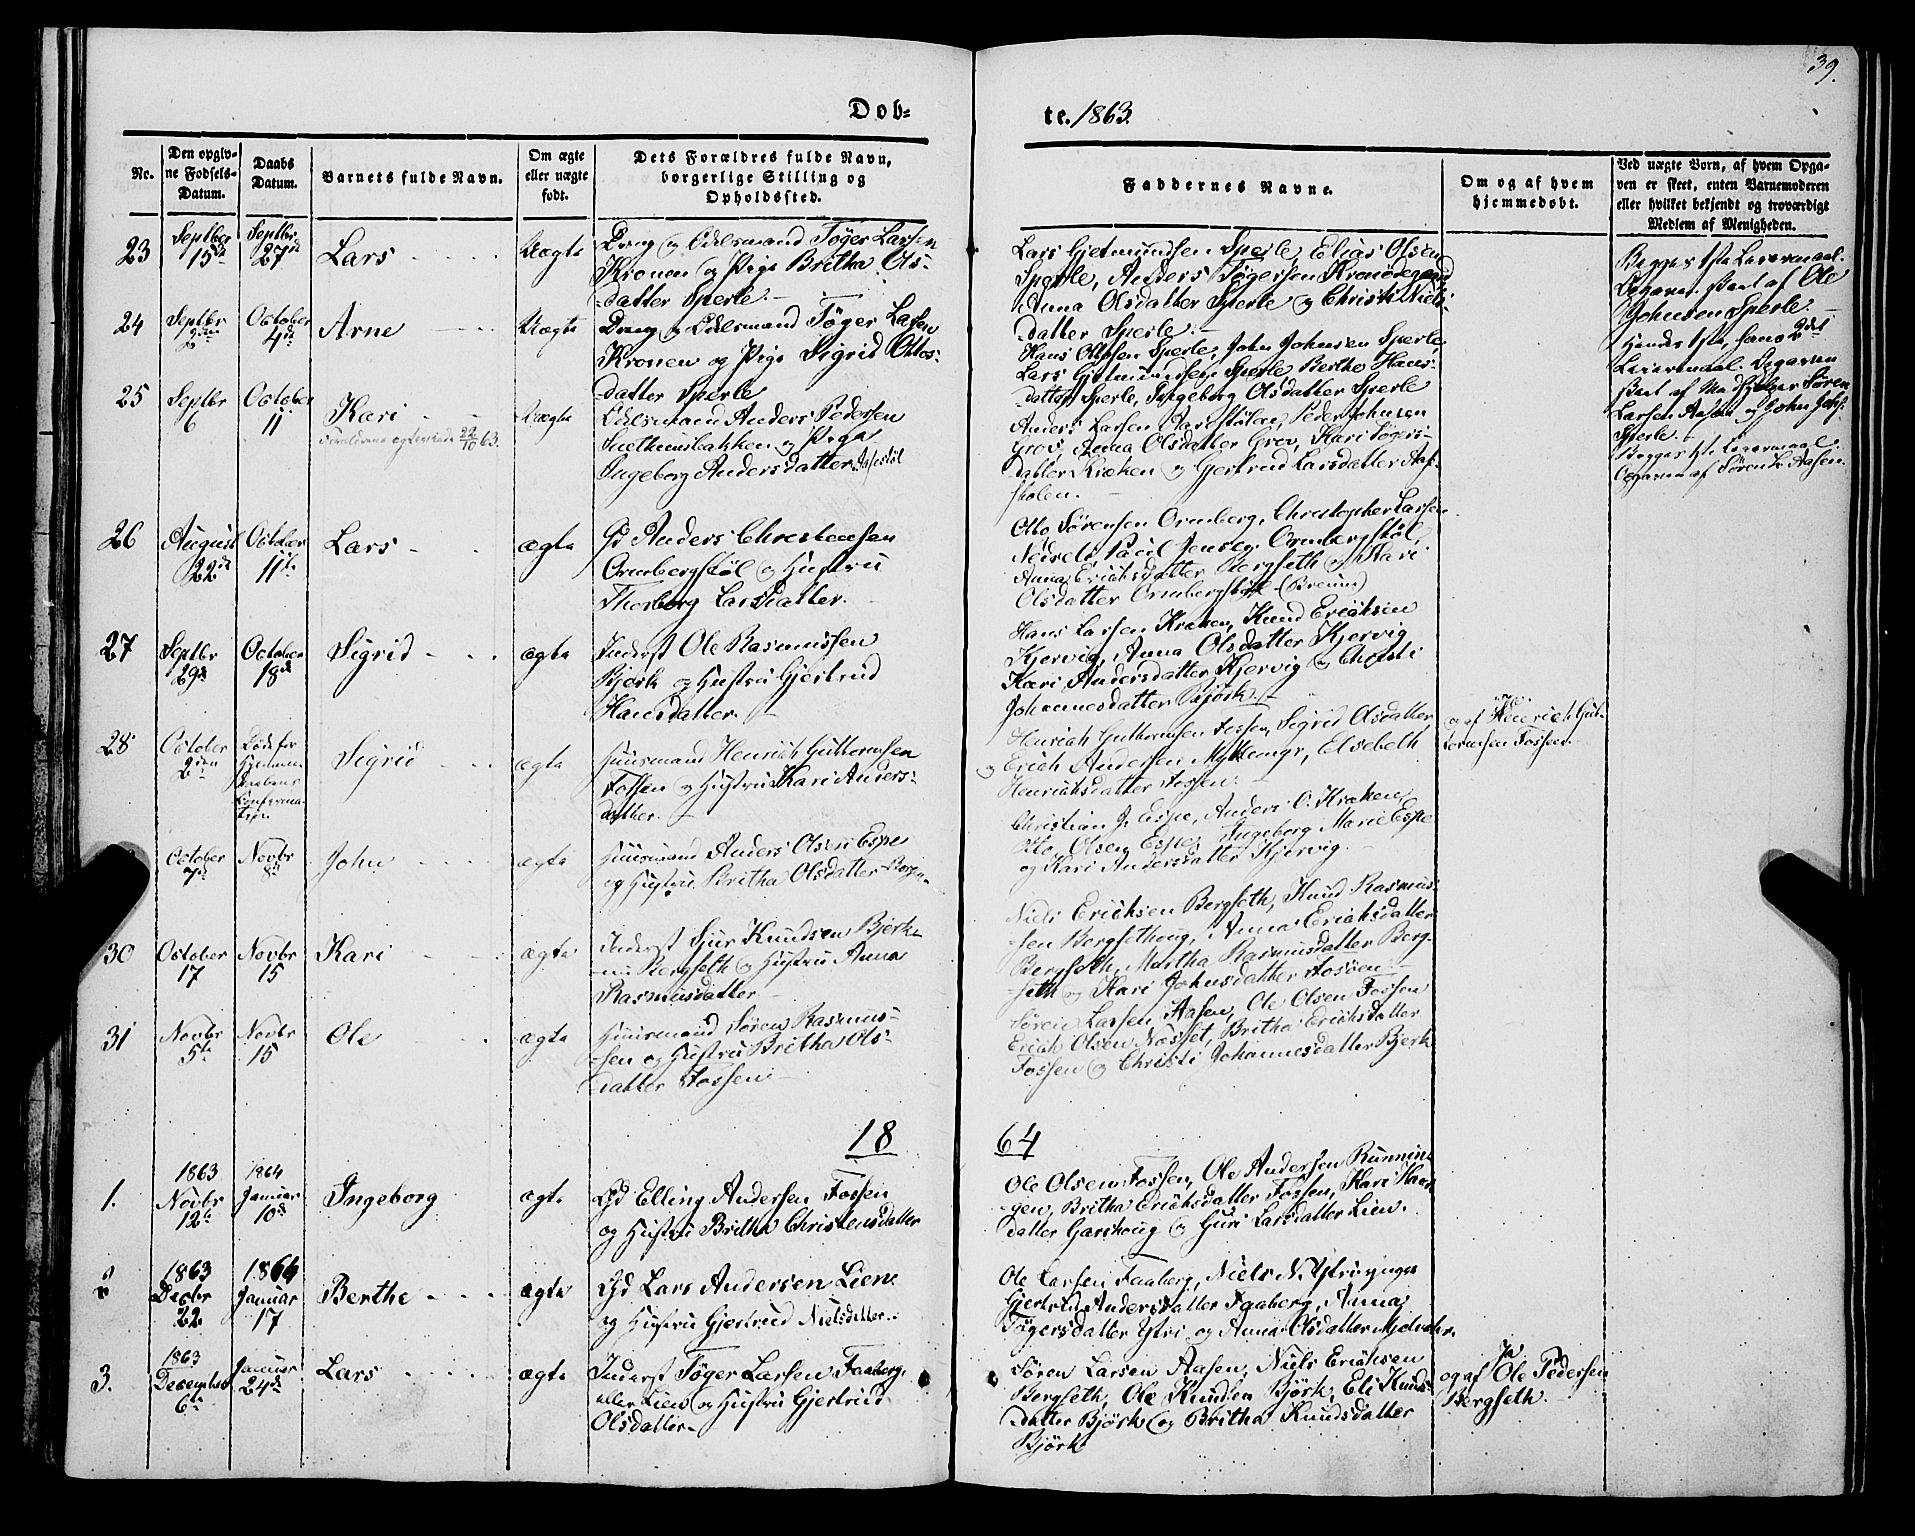 39.
Døb=
te. 1863.
No.
Den opgiv=
ne Fødsels=
Datum.
Daabs
Datum.
Barnets fulde Navn.
Om ægte
eller uægte
født.
Dets Forældres fulde Navn,
borgerlige Stilling og
Opholdssted.
Faddernes Navne.
Om og af hvem
hjemmedøbt.
Ved uægte Børn, af hvem Opga=
ven er skeet, enten Barnemoderen
eller hvilket bekjendt og troværdigt
Medlem af Menigheden.
23
Septbr
15de
Septbr
27de
Lars
Uægte
Dreng og Edelsmand Tøger Larsen
Kronen og Pige Britha Ols=
datter Sperle.
Lars Gjetmundsen Sperle, Elias Olsen
Sperle, Anders Tøgersen
Anna Olsdatter Sperle og Christi Niels
datter Sperle.
Begges 1ste Leiermaal.
Opgaven skeet af Ole
Johnsen Sperle.
24
Septbr
October
4de
Arne
Uægte
og Edelsmand Tøger Larsen
Kronen og Pige Sigrid Ottos=
datter Sperle
Hans Ottosen Sperle, John Johnsen Sperle,
Lars Gjetmundsen Sperle Berthe Hans=
datter Sperle, Ingeborg Olsdatter Sperle
Hendes 1ste, hans 2det
Leiermaal. Opgaven
skeet af Søren
Larsen Aasen og John Johs
Sperle.
25
Septbr
6
October
11
Kari
Forældrene egteviede 22/10 63.
Uægte
Anders Pedersen
og Pige
Ingeborg Andersdatter Aafestøl
Anders Larsen Peder Johnsen
Grov, Anna Olsdatter Grov, Kari Tøgers=
datter Kræken og Gjertrud Larsdatter Aaf=
stølen.
Begges 1ste Leiermaal
Opgaven af Søren L. Aasen.
26
August
22de
October
11te
Lars
ægte
Gd Anders Christensen
Ormbergstøl og Hustru
Thorborg Larsdatter.
Otto Sørensen Ormberg, Christopher Larsen
Nedrelid Poul Jensen Ormbergstøl,
Anna Erichsdatter Bergseth og Kari
Olsdatter Ormbergstøl
27
Septbr
29de
October
18de
Sigrid
ægte
Inderst Ole Rasmussen
Bjørk og Hustru Gjertrud
Hansdatter.
Hans Larsen Kræken, Knud Erichsen
Kjervig, Anna Olsdatter Kjervig
Kari Andersdatter Kjervig og Christi
Johannesdatter Bjørk.
28
October
2den
Død før
Hjemme
Daabens
Confirma=
tion
Sigrid
ægte
Huusmand Henrich Guttormsen
Fossen og Hustru Kari Anders=
datter.
Henrich Guttormsen Fossen, Sigrid Olsdatter
og Erich Andersen Elsebeth
Henrichsdatter Fossen.
Ja
og af Henrich Gut=
tormsen Fossen.
October
7de
Novbr
8de
John
ægte
Huusmand Anders Olsen Espe
og Hustru Britha Olsdatter
Christian J. Espe, Anders O. Kræken,
Otto Olsen Espe, Ingeborg Marie Espe
og Kari Andersdatter Kjervig.
30
October
17
Novbr
15
Kari
ægte
Inderst Sjur Knudsen Bjerk
Bergseth og Hustru Anna
Rasmusdatter
Niels Erichsen Bergseth, Knud Rasmus=
sen Bergsethoug, Anna Erichsdatter
Bergseth, Martha Rasmusdatter Berg=
seth og Kari Johnsdatter
31
Novbr
5te
Novbr
15
Ole
ægte
Huusmand Søren Rasmus=
sen og Hustru Britha Ols=
datter Fossen
Søren Larsen Aasen, Ole Olsen Fossen
Erich Olsen Næsset, Britha Erichsdatter
Fossen og Christi Johannesdatter Bjerk
18
64
1.
1863
Novbr
12te
1864
Januar
10de
Ingeborg
ægte
Gd Elling Andersen Fossen
og Hustru Britha Christensdatter
Ole Olsen Fossen, Ole Andersen Runnin=
gen, Britha Erichsdatter Fossen, Kari Hans
datter Garshoug og Guri Larsdatter Lien.
2
1863
Decbr
22
1864
Januar
17
Berthe
ægte
Gd Lars Andersen Lien
og Hustru Gjertrud Nielsdatter
Ole Larsen Faaberg, Niels N.
Gjertrud Andersdatter Faaberg, Anna
Tøgersdatter Ytri og Anna Olsdatter
3.
1863
December
6te
Januar
24de
Lars
ægte
Inderst Tøger Larsen Faaberg,
eller Lien og Hustru Gjertrud
Olsdatter
Søren Larsen Aasen, Niels Erichsen
Bergseth, Ole Knudsen Bjørk, Eli Knuds
datter Bjørk og Britha Knudsdatter
Bjørk
Ja
og af Ole Pedersen
Bergseth.